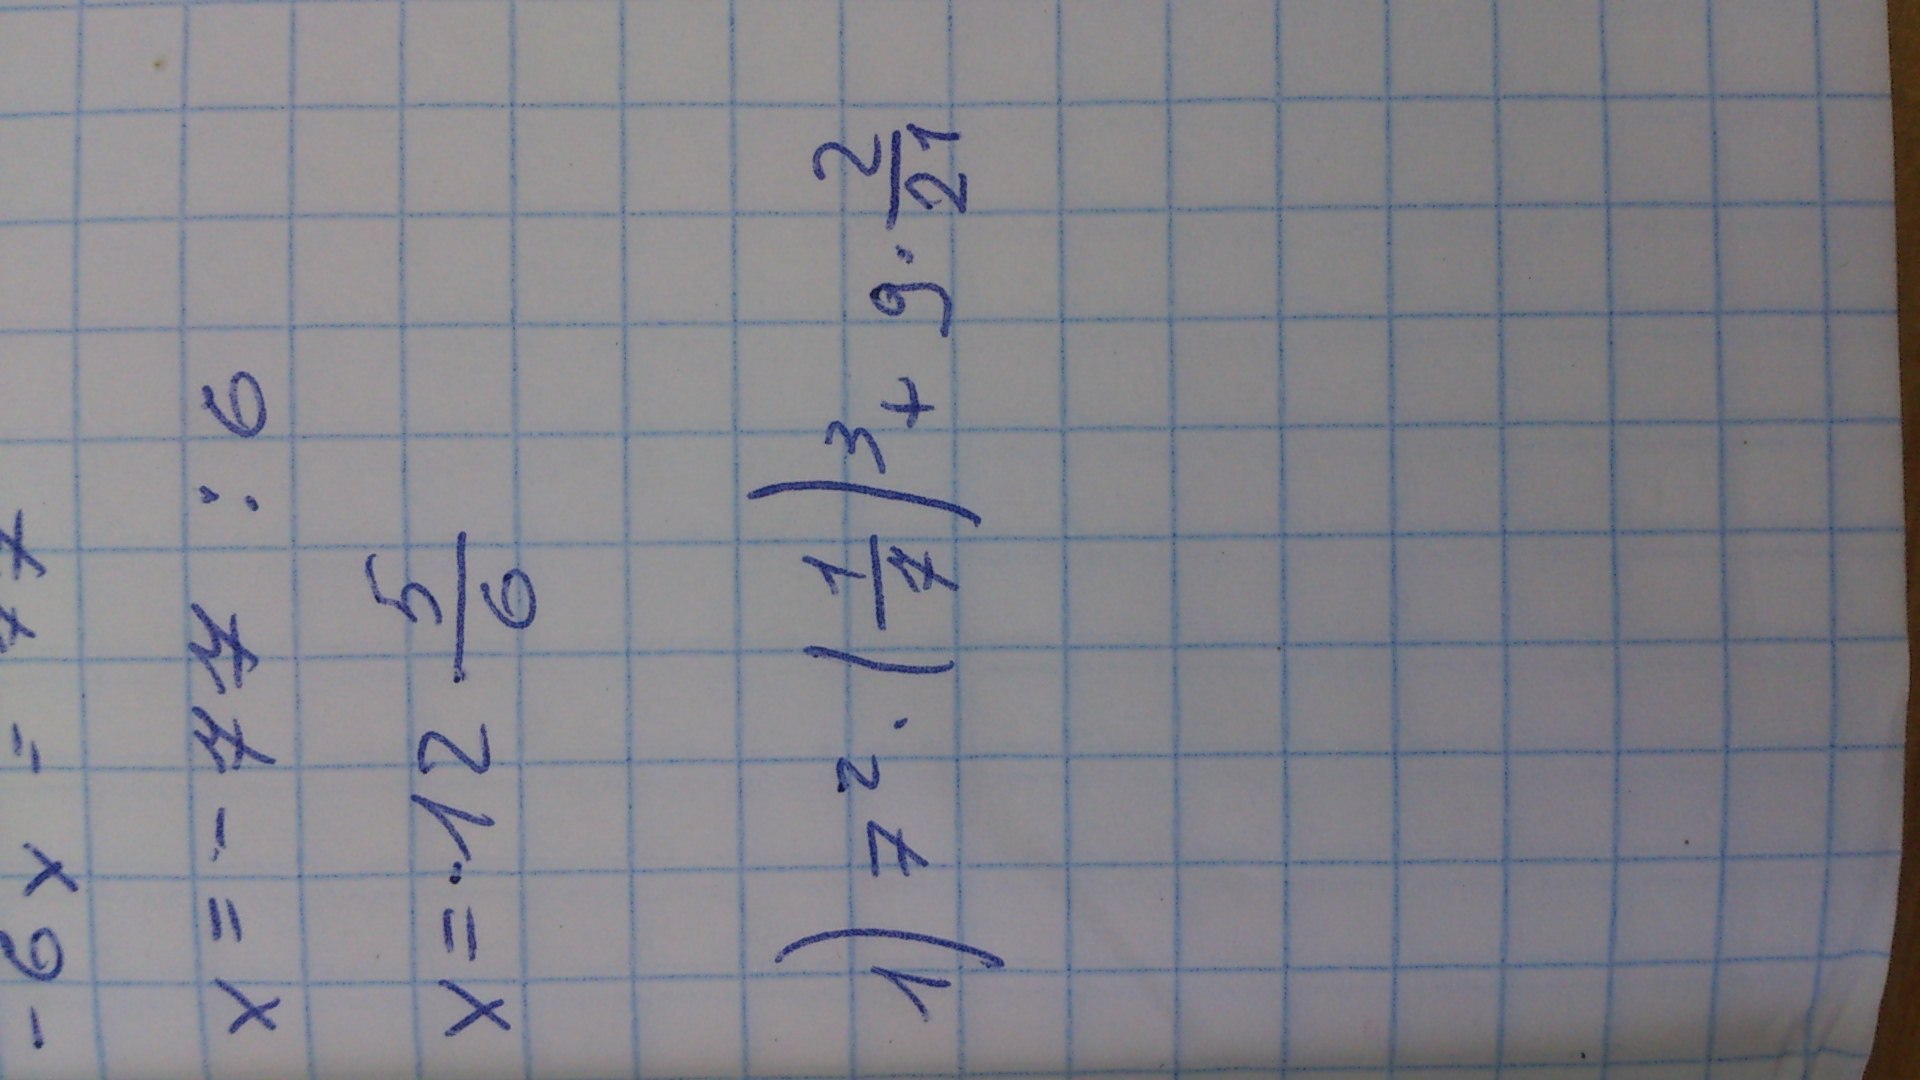 - 6x = 77
x = - 77 : 6
x = -12 5/6
1) 7² · (1/7)³ + 9 · 2/21